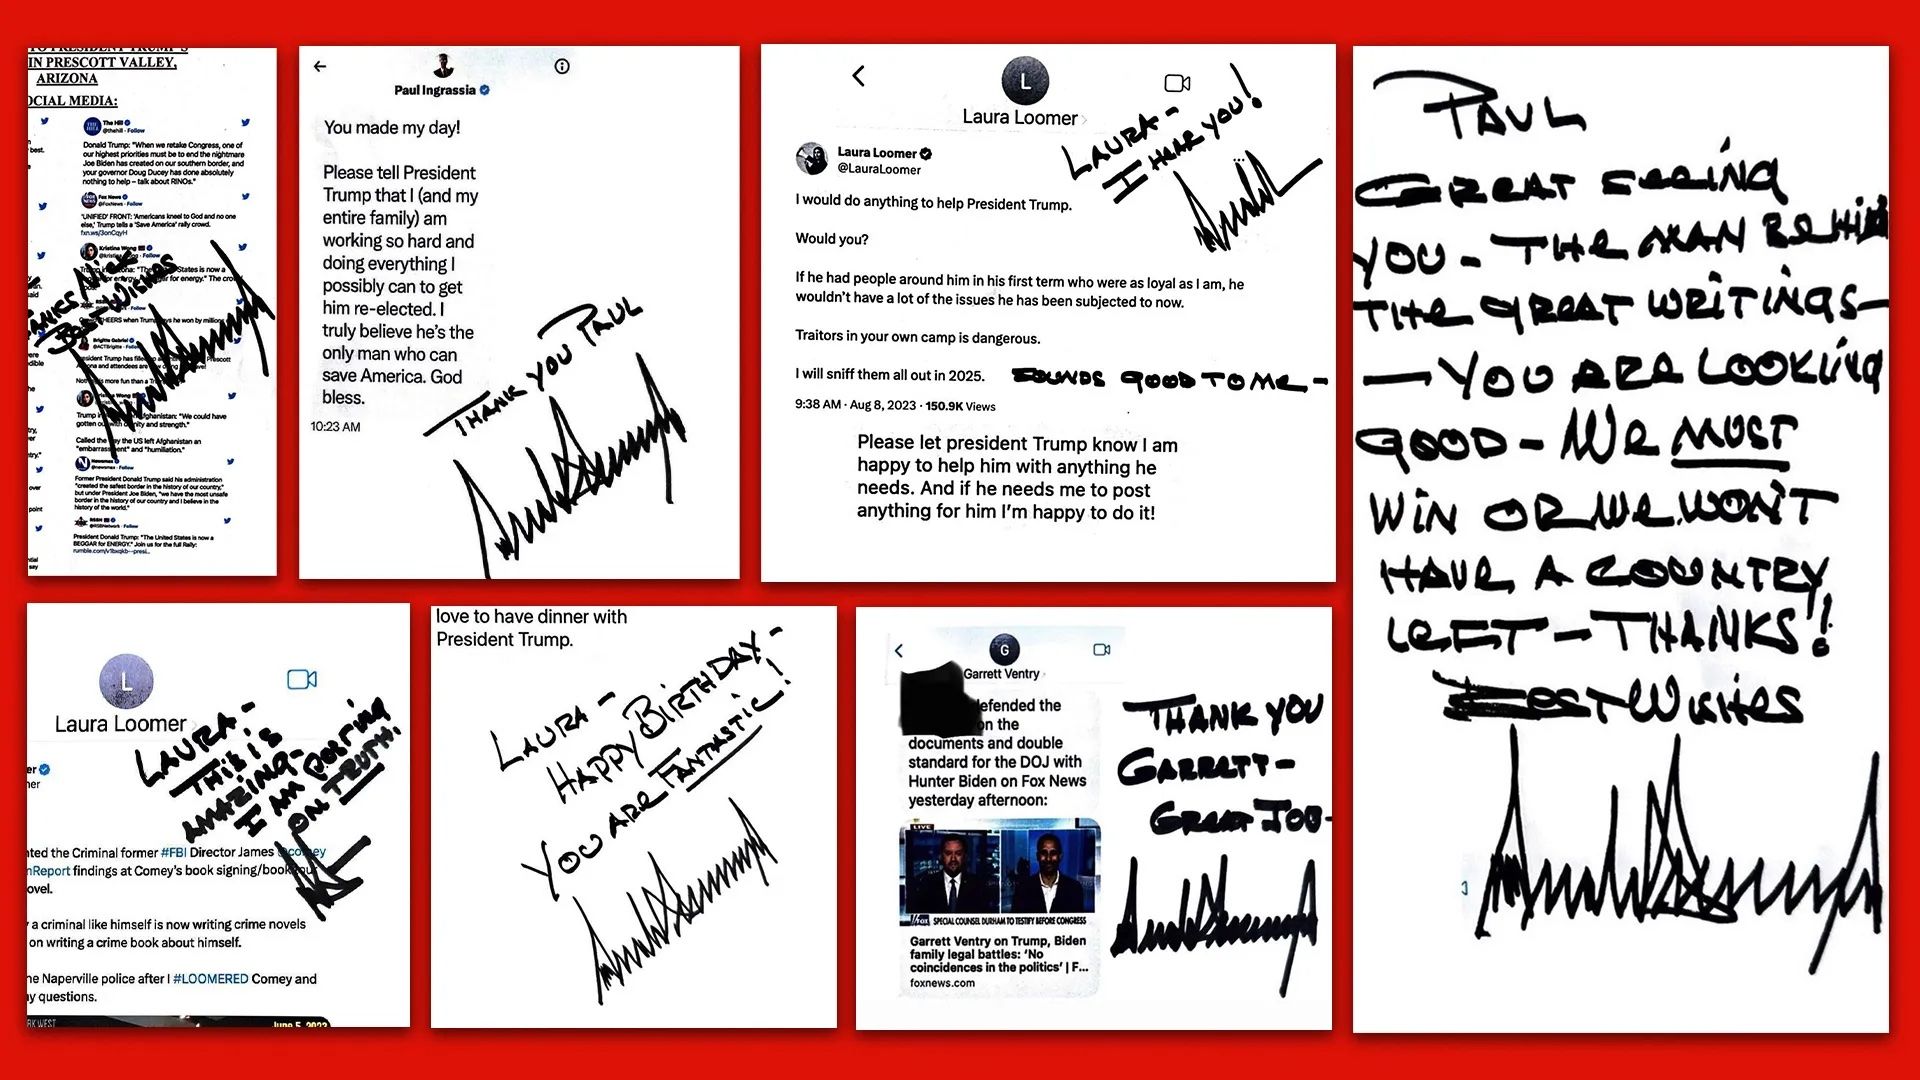 TO PRESIDENT TRUMP'S
IN PRESCOTT VALLEY,
ARIZONA
OCIAL MEDIA:
best.
The Hill
@thehill · Follow
Donald Trump: "When we retake Congress, one of
our highest priorities must be to end the nightmare
Joe Biden has created on our southern border, and
your governor Doug Ducey has done absolutely
nothing to help – talk about RINOs."
Fox News
@FoxNews · Follow
'UNIFIED' FRONT: 'Americans kneel to God and no one
else,' Trump tells a 'Save America' rally crowd.
fxn.ws/3onCqyH
Kristina Wong
States is now a
for energy." The
said
CHEERS when Trump
he won by millions
Brigitte Gabriel
@ACTBrigitte · Follow
President Trump has
Prescott
and attendees are
more fun than a
Trump
Afghanistan: "We could have
gotten out with dignity and strength."
Called the
the US left Afghanistan an
"embarrassment" and "humiliation."
Newsmax
@newsmax · Follow
over
Former President Donald Trump said his administration
"created the safest border in the history of our country,"
but under President Joe Biden, "we have the most unsafe
border in the history of our country and I believe in the
history of the world."
point
RSBN
@RSBNetwork · Follow
President Donald Trump: "The United States is now a
BEGGAR for ENERGY." Join us for the full Rally:
say
THANKS NICK
BEST WISHES
Paul Ingrassia
You made my day!
Please tell President
Trump that I (and my
entire family) am
working so hard and
doing everything I
possibly can to get
him re-elected. I
truly believe he's the
only man who can
save America. God
bless.
10:23 AM
THANK YOU PAUL
L
Laura Loomer
Laura Loomer
@LauraLoomer
LAURA –
I HEAR YOU!
I would do anything to help President Trump.
Would you?
If he had people around him in his first term who were as loyal as I am, he
wouldn't have a lot of the issues he has been subjected to now.
Traitors in your own camp is dangerous.
I will sniff them all out in 2025.
SOUNDS GOOD TO ME –
9:38 AM · Aug 8, 2023 · 150.9K Views
Please let president Trump know I am
happy to help him with anything he
needs. And if he needs me to post
anything for him I'm happy to do it!
PAUL
GREAT SEEING
YOU – THE MAN BEHIND
THE GREAT WRITINGS –
– YOU ARE LOOKING
GOOD – WE MUST
WIN OR WE WON'T
HAVE A COUNTRY
LEFT – THANKS!
BEST WISHES
L
Laura Loomer
LAURA –
THIS IS
AMAZING –
I AM POSTING
ON TRUTH.
er
ner
nted the Criminal former #FBI Director James @comey
nReport findings at Comey's book signing/book tour
ovel.
y a criminal like himself is now writing crime novels
on writing a crime book about himself.
he Naperville police after I #LOOMERED Comey and
y questions.
RK WEST
June 5, 2023
love to have dinner with
President Trump.
LAURA –
HAPPY BIRTHDAY –
YOU ARE FANTASTIC!
G
Garrett Ventry
efended the
on the
documents and double
standard for the DOJ with
Hunter Biden on Fox News
yesterday afternoon:
LIVE
FOX
SPECIAL COUNSEL DURHAM TO TESTIFY BEFORE CONGRESS
Garrett Ventry on Trump, Biden
family legal battles: 'No
coincidences in the politics' | F...
foxnews.com
THANK YOU
GARRETT –
GREAT JOB –